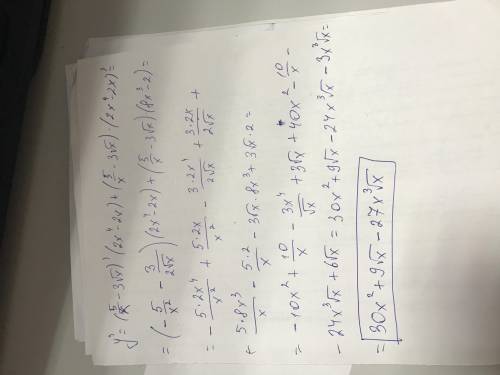 y' = (5/x - 3√x)' (2x⁴-2x) + (5/x - 3√x) (2x⁴-2x)' =
= (-5/x² - 3/(2√x)) (2x⁴-2x) + (5/x - 3√x) (8x³-2) =
= - 5·2x⁴/x² + 5·2x/x² - 3·2x⁴/(2√x) + 3·2x/(2√x) +
+ 5·8x³/x - 5·2/x - 3√x·8x³ + 3√x·2 =
= -10x² + 10/x - 3x⁴/√x + 3√x + 40x² - 10/x -
- 24x³√x + 6√x = 30x² + 9√x - 24x³√x - 3x³√x =
= 30x² + 9√x - 27x³√x